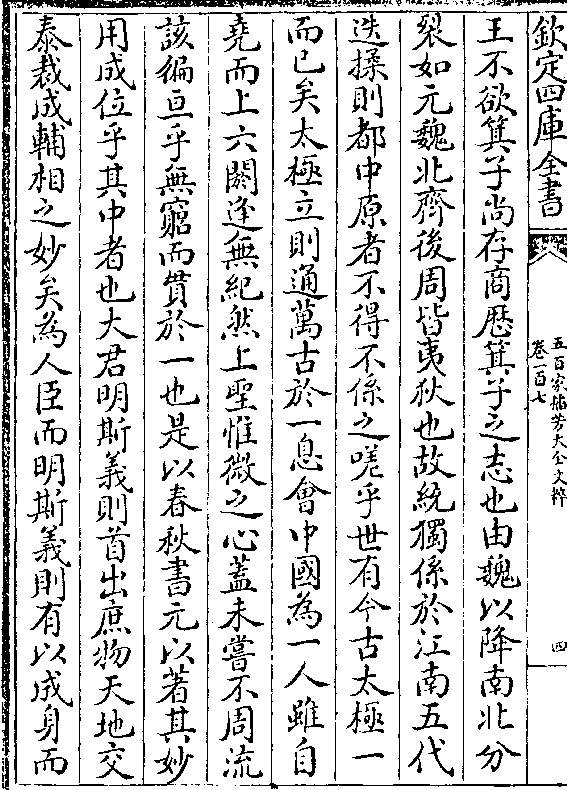 欽定四庫全書
五百家播芳大全文粹
卷一百七
四
王不欲箕子尚存商歴箕子之志也由魏以降南北分
裂如元魏北齊後周皆夷狄也故統獨係於江南五代
迭擾則都中原者不得不係之嗟乎世有今古太極一
而已矣太極立則通萬古於一息會中國為一人雖自
堯而上六閼逢無紀然上聖惟微之心蓋未嘗不周流
該徧亘乎無窮而貫於一也是以春秋書元以著其妙
用成位乎其中者也大君明斯義則首出庶物天地交
泰裁成輔相之妙矣為人臣而明斯義則有以成身而